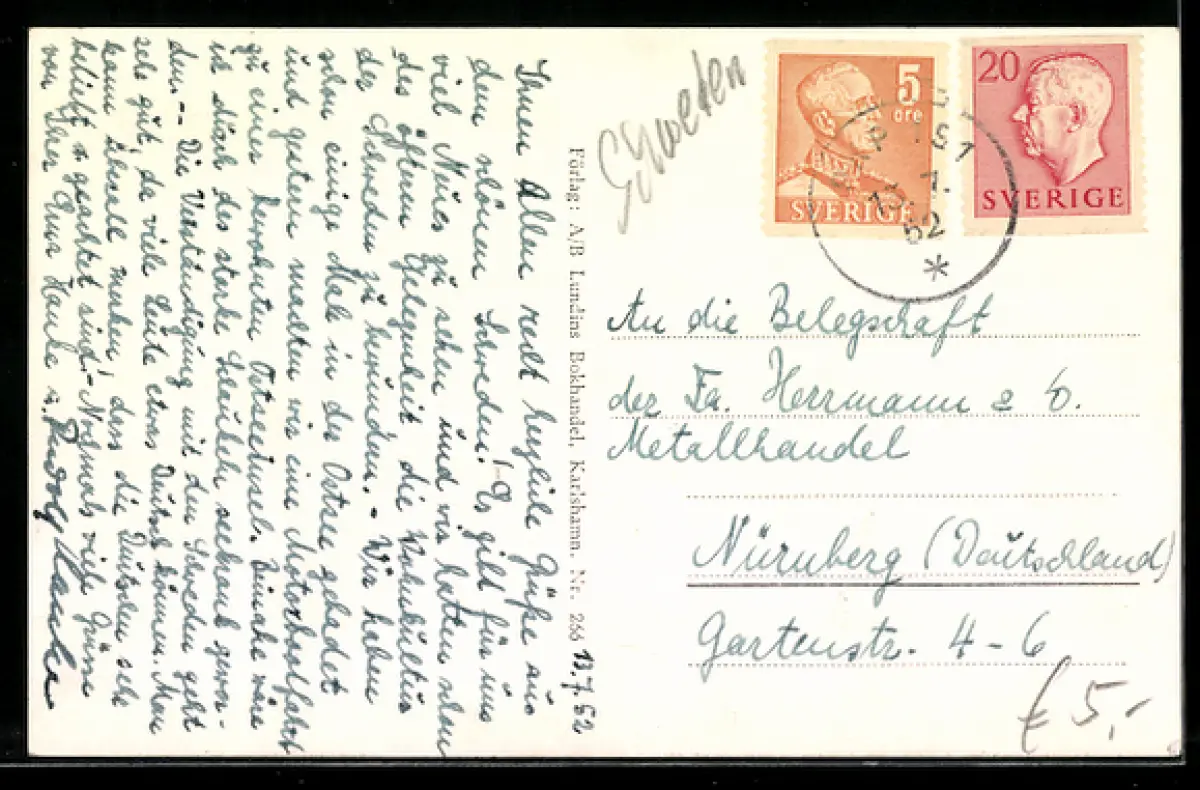 Ihnen Allen recht herzliche Grüße aus
dem schönen Schweden! Es gibt für uns
viel Neues zu sehen und wir hatten schon
des öftern Gelegenheit die Wohnkultur
der Schweden zu bewundern. - Wir haben
schon einige Male in der Ostsee gebadet
und gestern machten wir eine Motorbootfahrt
zu einer bewohnten Ostseeinsel. Beinahe wäre
ich durch das starke Schaukeln seekrank gewor-
den. -- Die Verständigung mit den Schweden geht
sehr gut, da viele Leute etwas Deutsch können. Man
kann überall merken, dass die Deutschen sehr
beliebt & geachtet sind! - Nochmals viele Grüsse
von Ihrer Erna Hanka u. Rudolf Hanka
Förlag: A/B Lundins Bokhandel, Karlshamn. Nr. 266
13.7.52
Schweden
5
öre
SVERIGE
20
SVERIGE
7.
52
*
An die Belegschaft
der Fa. Herrmann & G.
Metallhandel
Nürnberg (Deutschland)
Gartenstr. 4-6
€ 5,-